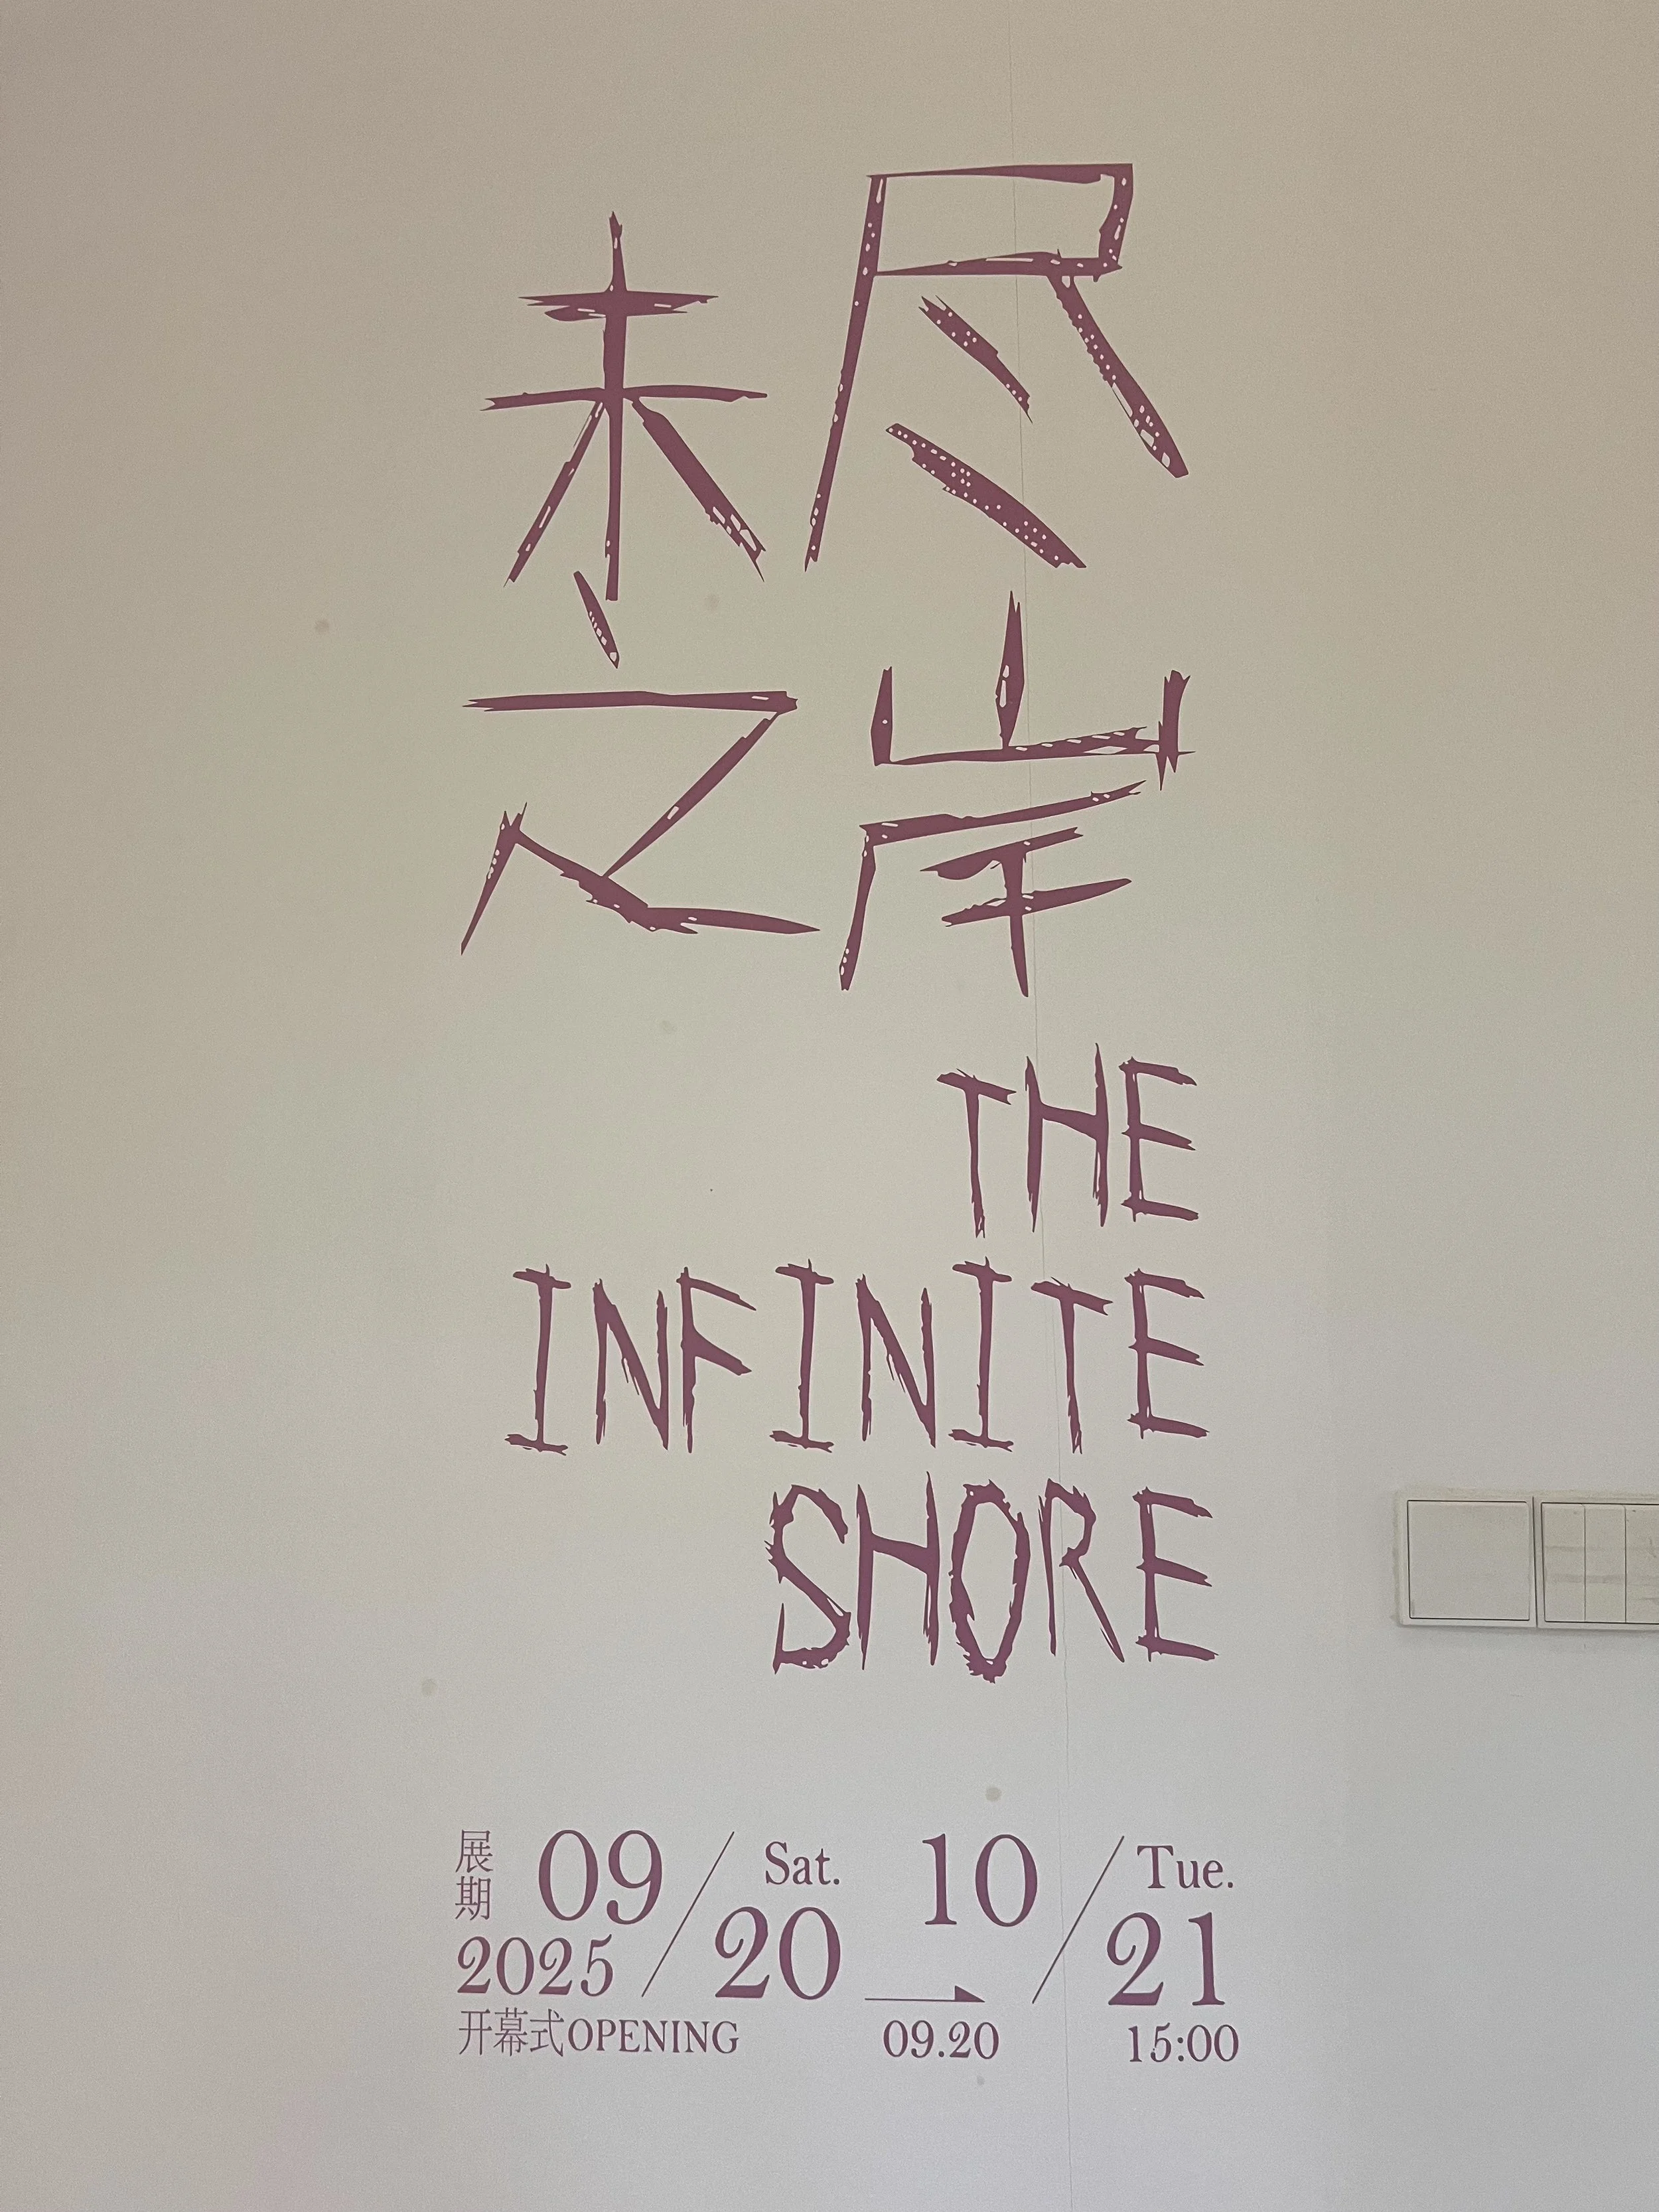 未尽
之岸
THE
INFINITE
SHORE
展期 09/20 Sat. 10/21 Tue.
2025
开幕式OPENING 09.20 15:00